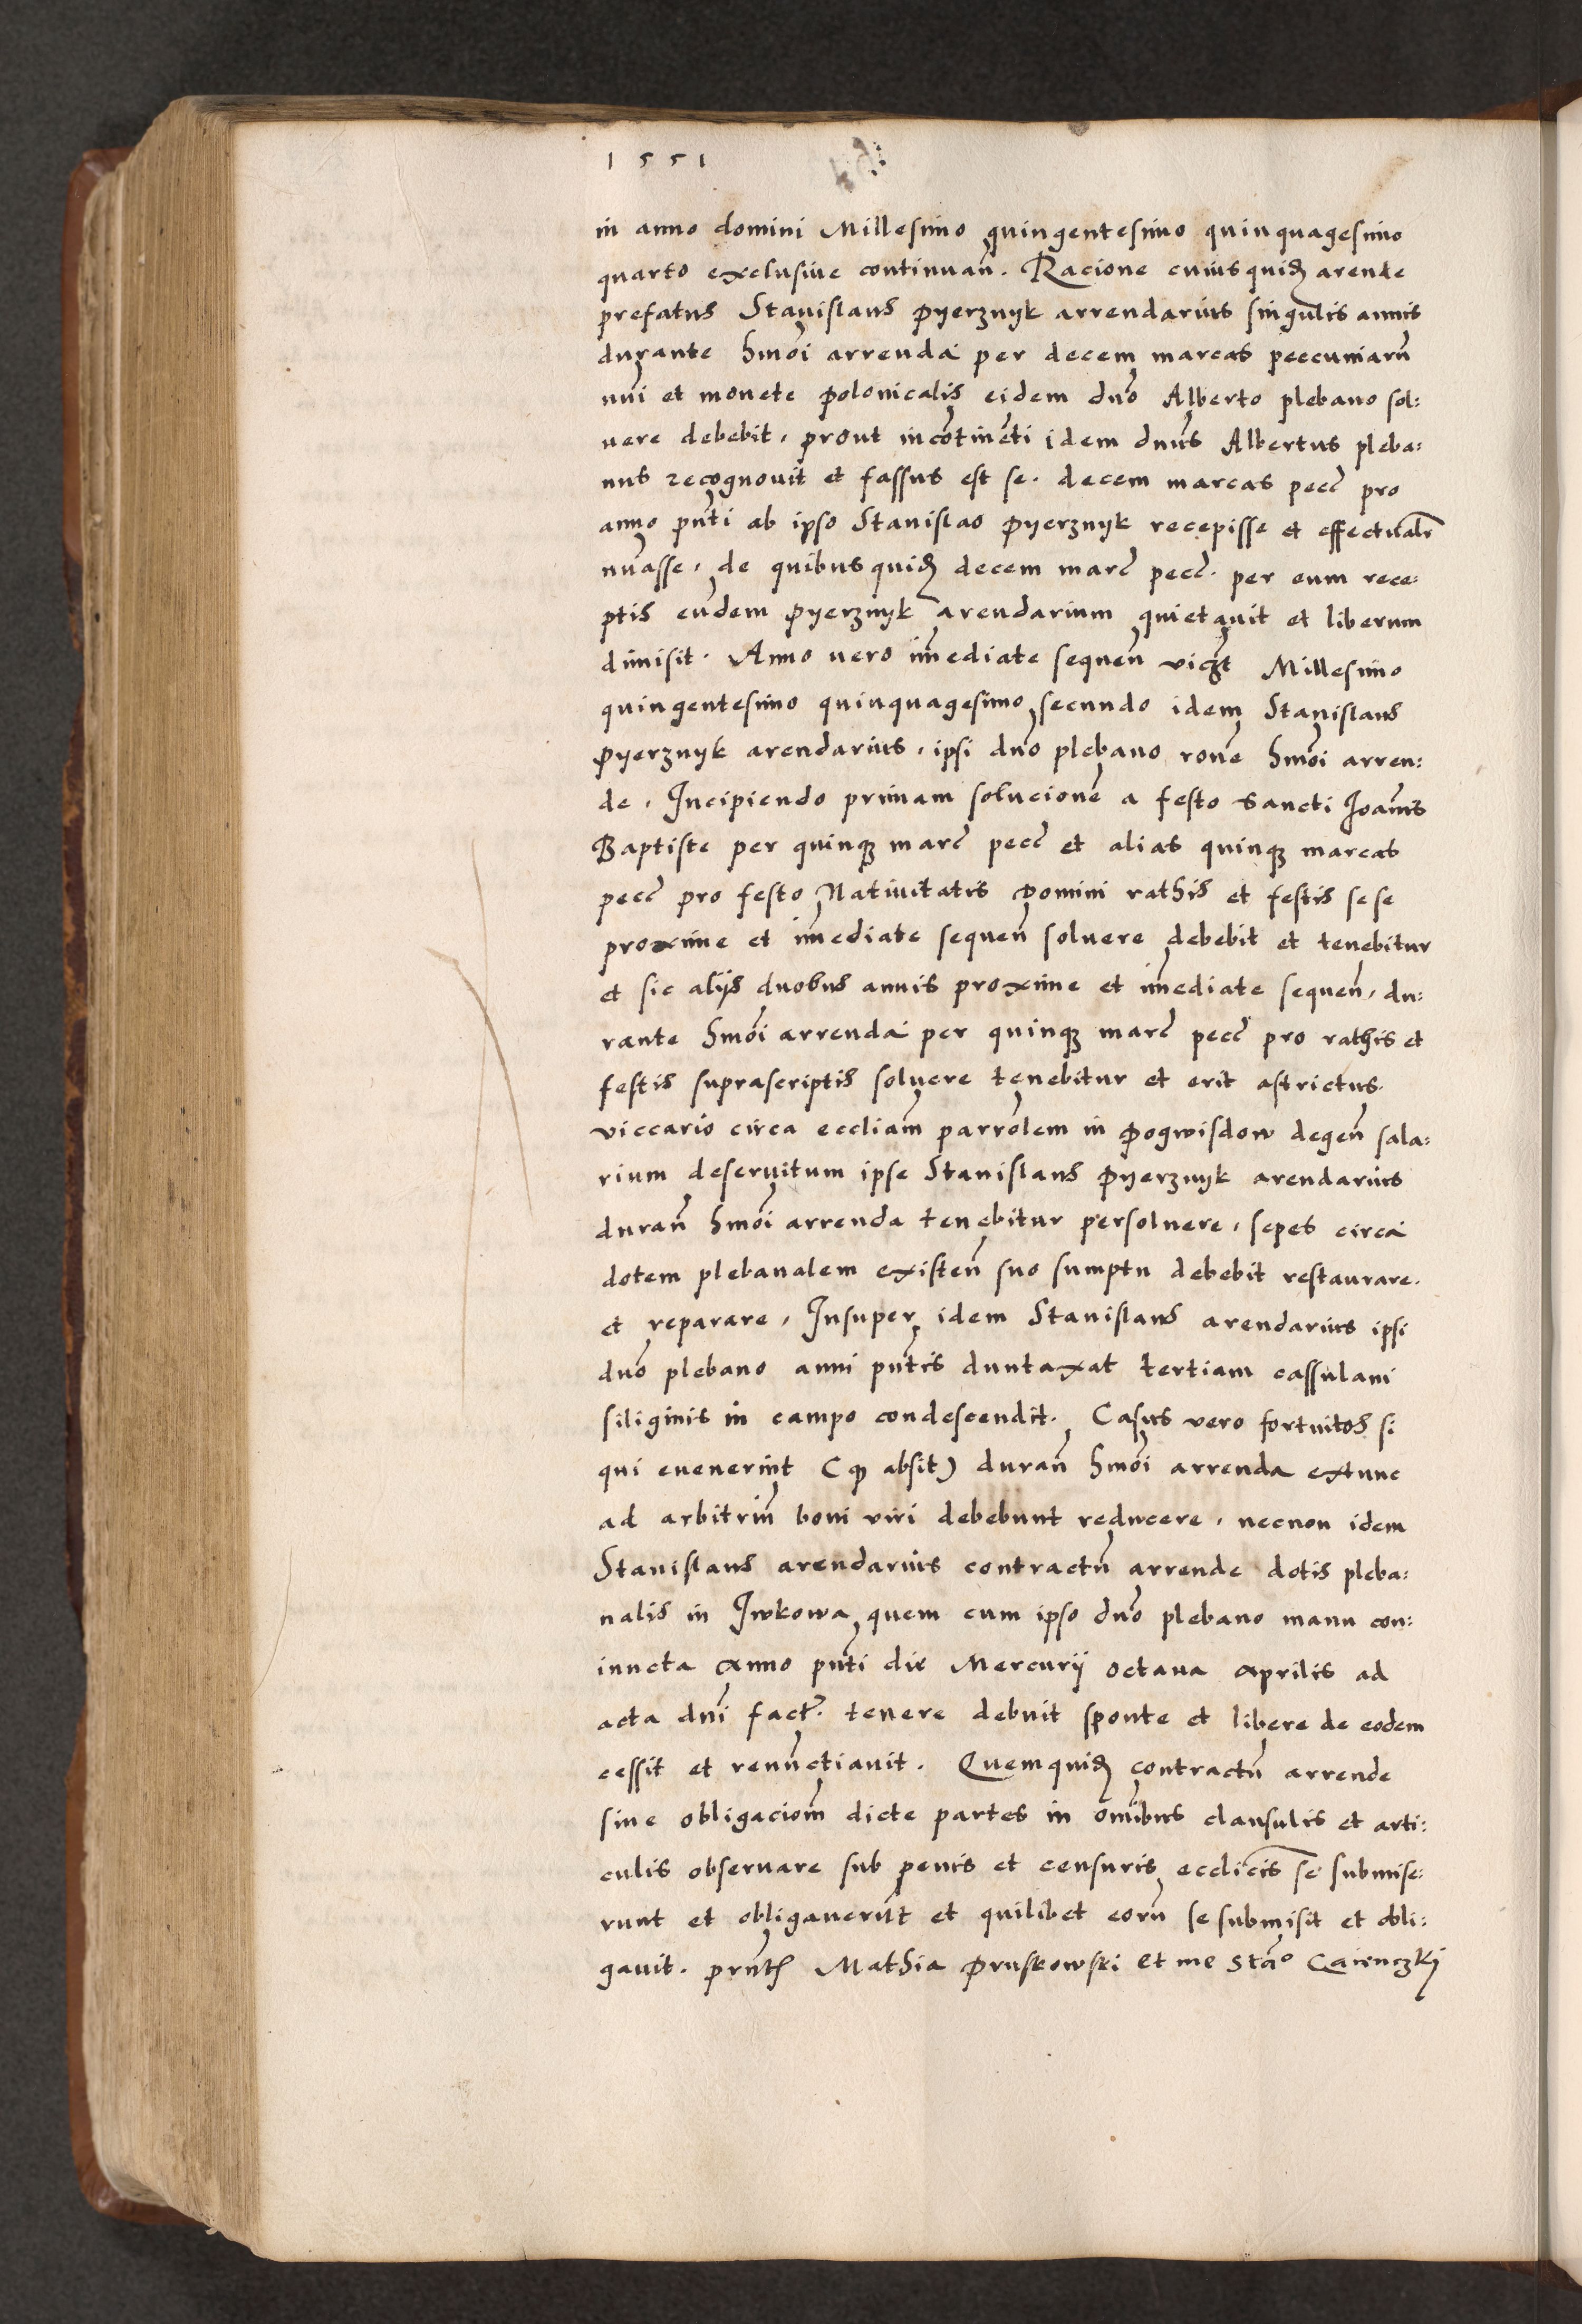 1551
in anno domini Millesimo quingentesimo quinquagesimo
quarto exclusiue continuan̄. Racione cuiusquidꝫ arende
prefatus Stanislaus Pyerznyk arrendarius singulis annis
durante hm̄oi arrenda per decem marcas peccuniarū
nūi et monete polonicalis eidem dn̄o Alberto plebano sol:
uere debebit, prout incōtinēti idem dn̄us Albertus pleba:
nus recognouit et fassus est se. decem marcas pecc̄ pro
anno pn̄ti ab ipso Stanislao Pyerznyk recepisse et effectualr̄
nuasse, de quibusquidꝫ decem marc̄ pecc̄. per eum rece:
ptis eundem Pyerznyk arendarium quietauit et liberum
dimisit. Anno vero īmediate sequen̄ viczt Millesimo
quingentesimo quinquagesimo secundo idem Stanislaus
Pyerznyk arendarius, ipsi dn̄o plebano rōne hm̄oi arren:
de, Incipiendo primam solucionē a festo sancti Joan̄is
Baptiste per quinqꝫ marc̄ pecc̄ et alias quinqꝫ marcas
pecc̄ pro festo Natiuitatis Domini rathis et festis sese
proxime et īmediate sequen̄ soluere debebit et tenebitur
et sic alijs duobus annis proxime et īmediate sequen̄, du:
rante hm̄oi arrenda per quinqꝫ marc̄ pecc̄ pro rathis et
festis suprascriptis soluere tenebitur et erit astrictus.
viccario circa eccliam̄ parrōlem in Pogwisdow degen̄ sala:
rium deseruitum ipse Stanislaus Pyerznyk arendarius
duran̄ hm̄oi arrenda tenebitur persoluere, sepes circa
dotem plebanalem existen̄ suo sumptu debebit restaurare.
et reparare, Insuper idem Stanislaus arendarius ipsi
dn̄o plebano anni pn̄tis duntaxat tertiam cassulam
siliginis in campo condescendit. Casus vero fortuitos si
qui euenerint (qꝫ absit) duran̄ hm̄oi arrenda extunc
ad arbitriū boni viri debebunt reducere, necnon idem
Stanislaus arendarius contractū arrende dotis pleba:
nalis in Iwkowa quem cum ipso dn̄o plebano manu con:
iuncta Anno pn̄ti die Mercurij octaua Aprilis ad
acta dn̄i fact̄. tenere debuit sponte et libere de eodem
cessit et renūctiauit. Quemquidꝫ contractū arrende
siue obligaciom̄ dicte partes in om̄ibus clausulis et arti:
culis obseruare sub penis et censuris ecclīcis se submise:
runt et obligauerūt et quilibet eorū se submisit et obli:
gauit. prn̄tꝭ Mathia Pruskowski et me Stāo